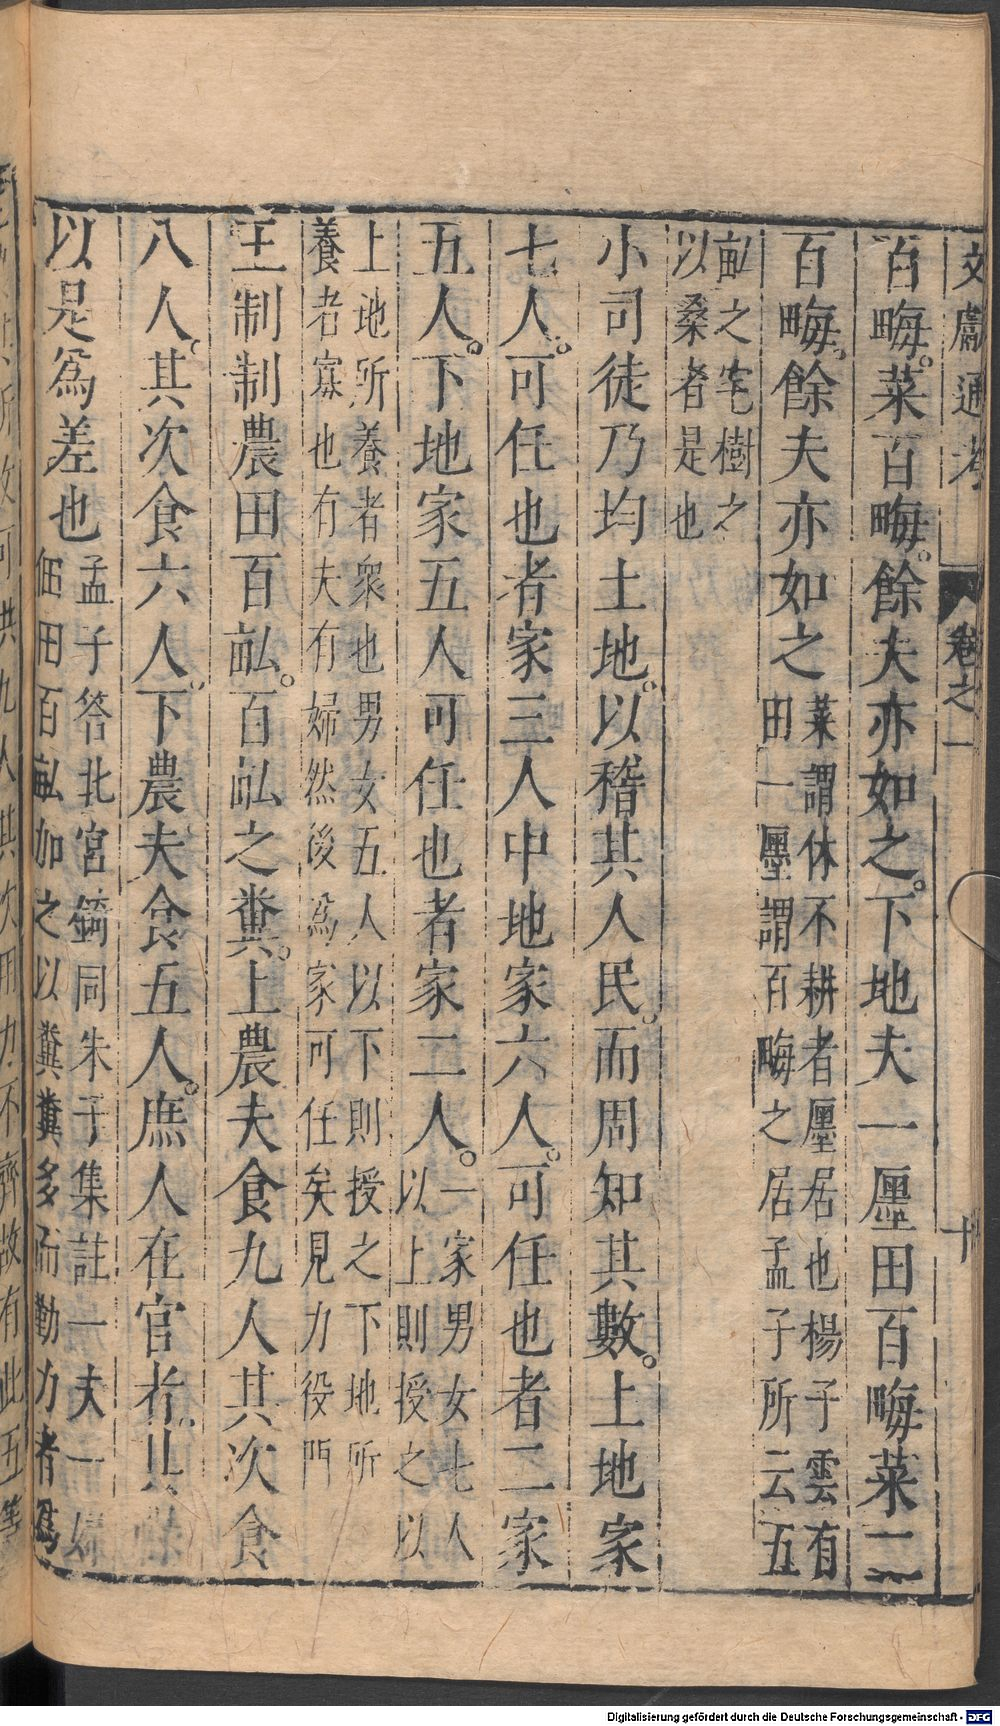 文獻通考 卷之一 十
百畮。萊百畮。餘夫亦如之。下地夫一廛田百畮萊二
百畮。餘夫亦如之
萊謂休不耕者廛居也楊子雲有
田一廛謂百畮之居孟子所云五
畝之宅樹之
以桑者是也
小司徒乃均土地。以稽其人民。而周知其數。上地家
七人。可任也者家三人中地家六人。可任也者二家
五人。下地家五人可任也者家二人。
一家男女七人
以上則授之以
上地所養者衆也男女五人以下則授之下地所
養者寡也有夫有婦然後爲家可任矣見力役門
王制制農田百畝。百畝之糞。上農夫食九人其次食
八人。其次食六人。下農夫食五人。庶人在官者。其祿
以是爲差也
孟子答北宮錡同朱子集註一夫一婦
佃田百畝加之以糞糞多而勤力者爲
其所收可供九人其次用力不齊故有此五等
Digitalisierung gefördert durch die Deutsche Forschungsgemeinschaft - DFG